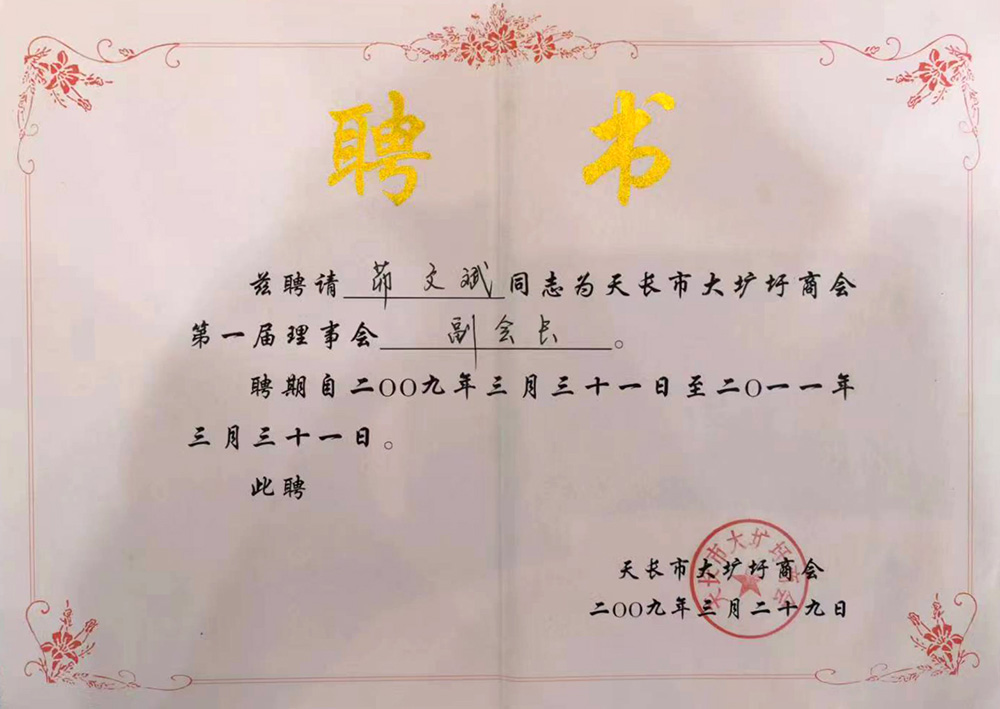 聘书
兹聘请茆文斌同志为天长市大圹圩商会
第一届理事会副会长。
聘期自二OO九年三月三十一日至二O一一年
三月三十一日。
此聘
天长市大圹圩商会
天长市大圹圩商会
二OO九年三月二十九日